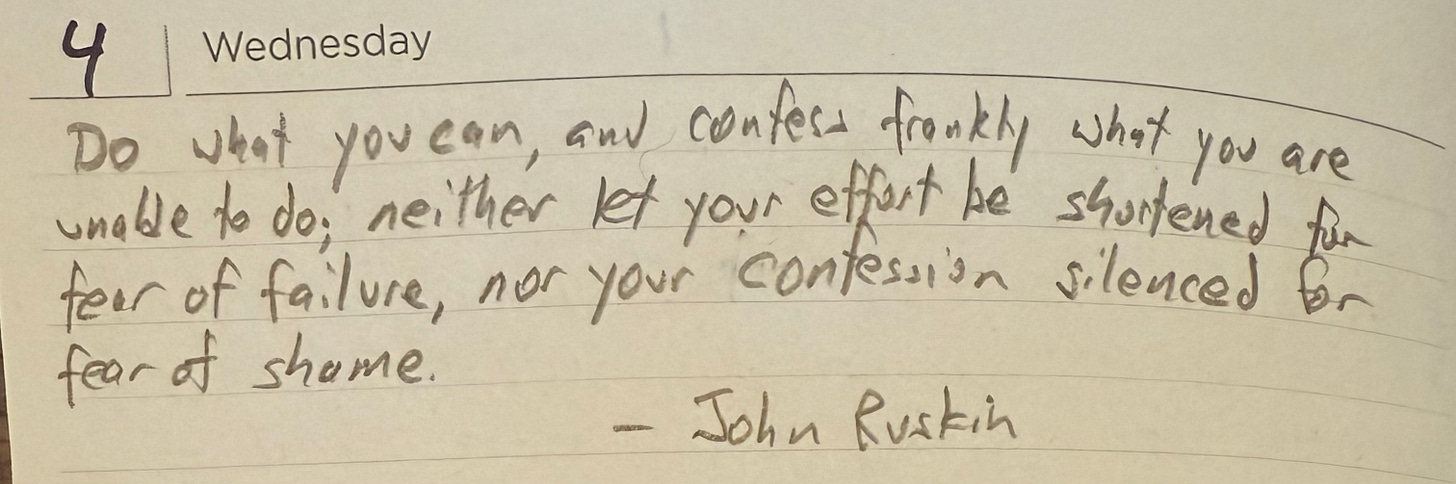 4 Wednesday
Do what you can, and confess frankly what you are
unable to do; neither let your effort be shortened for
fear of failure, nor your confession silenced for
fear of shame.
- John Ruskin